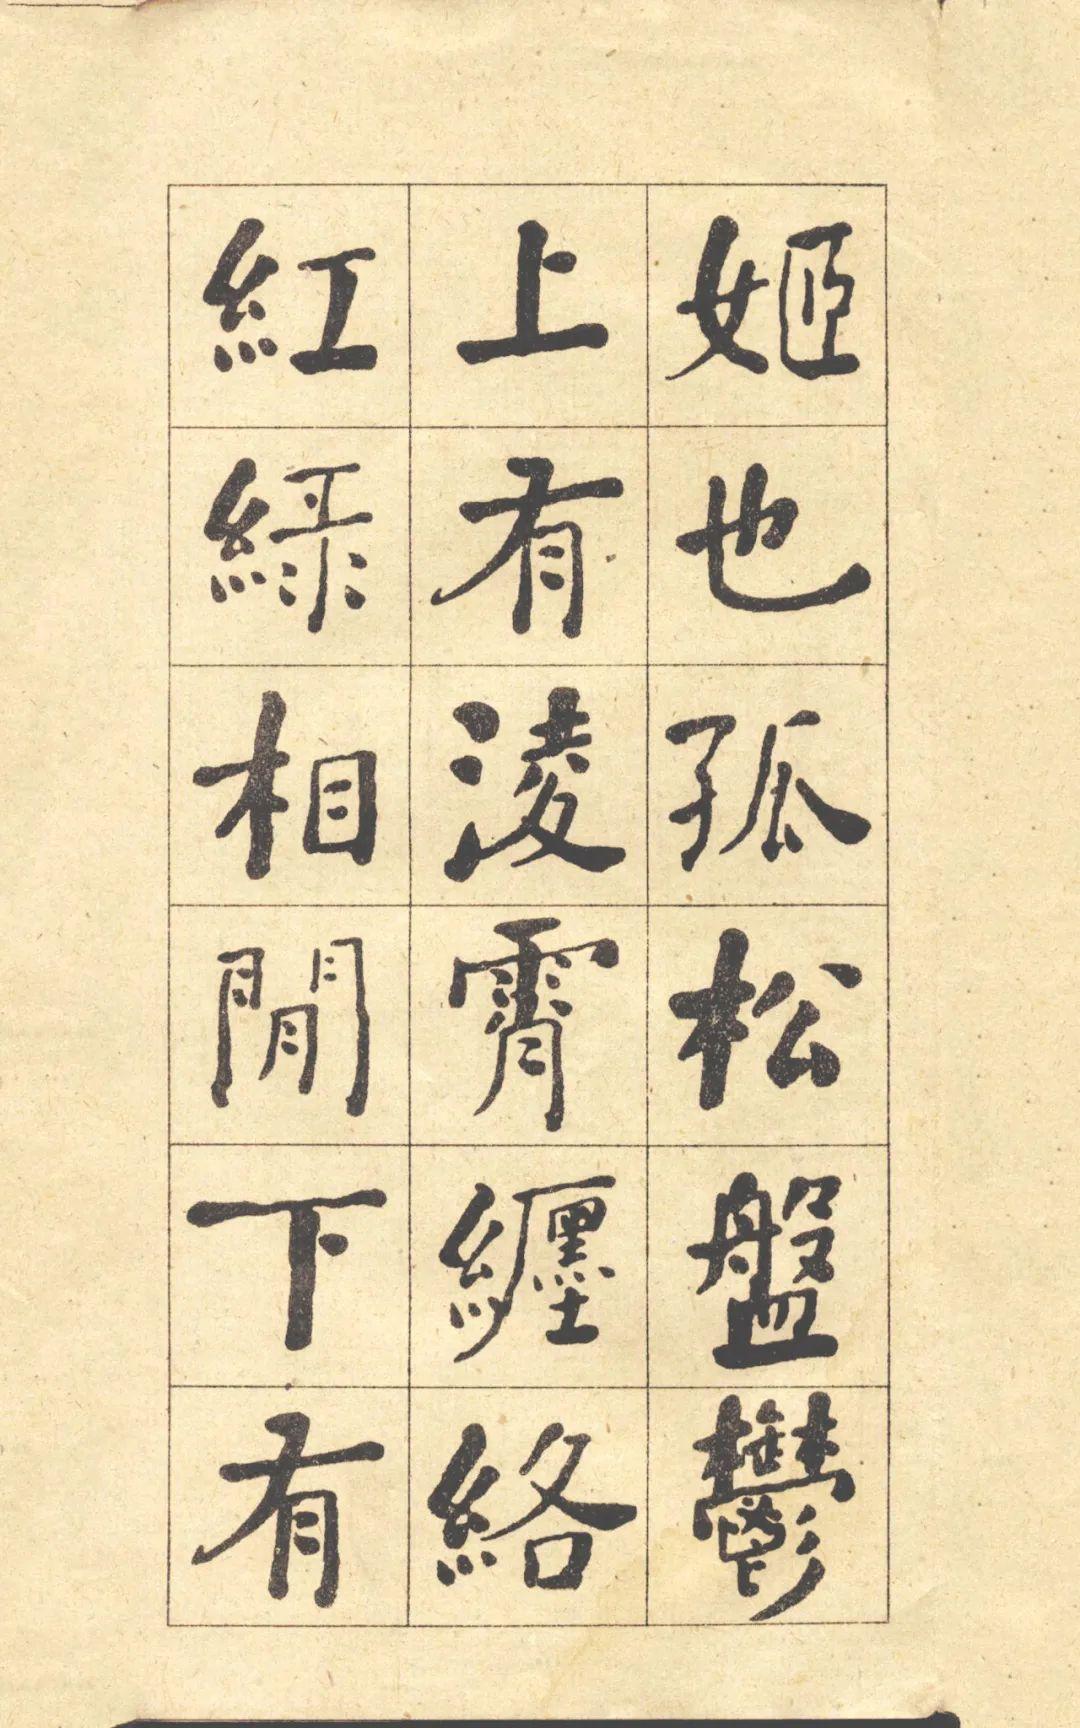 姬也孤松盤鬱
上有淩霄纏絡
紅綠相閒下有